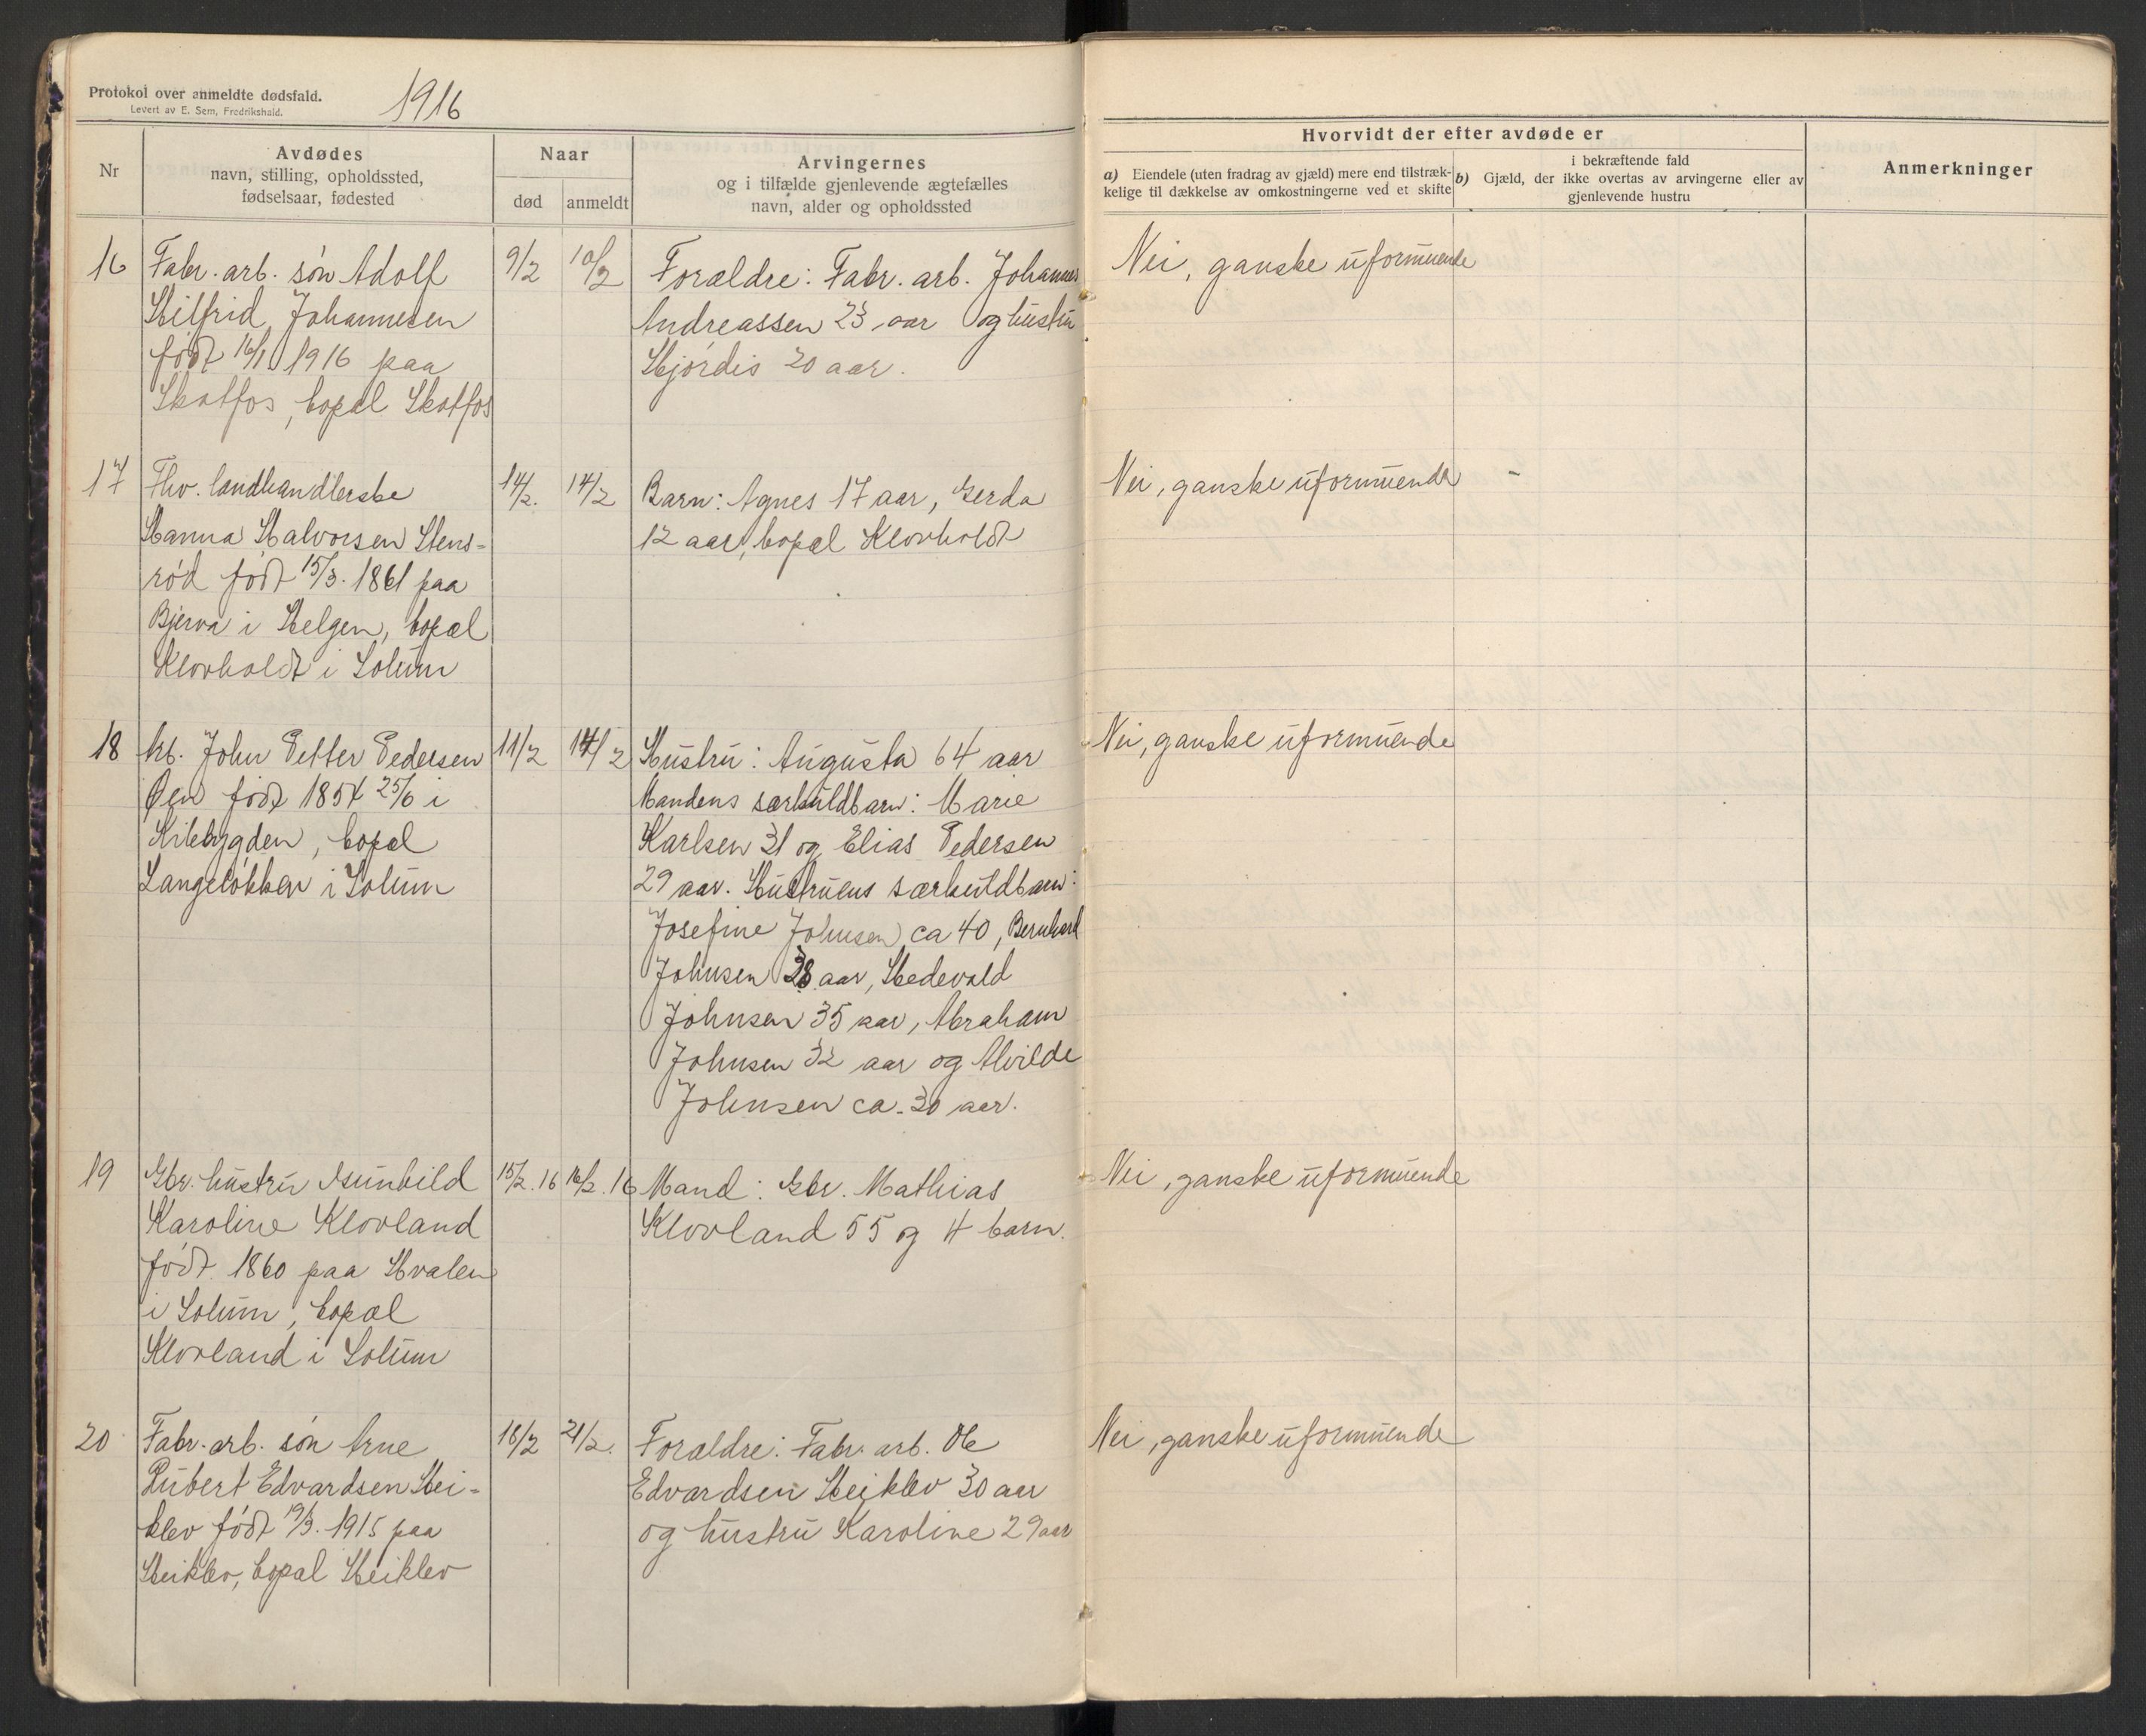 Protokol over anmeldte dødsfald.
Levert av E. Sem, Fredrikshald.
1916
Nr
Avdødes
navn, stilling, opholdssted,
fødselsaar, fødested
Naar
død
anmeldt
Arvingernes
og i tilfælde gjenlevende ægtefælles
navn, alder og opholdssted
Hvorvidt der efter avdøde er
a) Eiendele (uten fradrag av gjæld) mere end tilstræk-
kelige til dækkelse av omkostningerne ved et skifte
i bekræftende fald
b) Gjæld, der ikke overtas av arvingerne eller av
gjenlevende hustru
Anmerkninger
16
Fabr. arb. søn Adolf
Hilfrid Johannesen
født 16/1 1916 paa
Skotfos, bopæl Skotfos
9/2
10/2
Forældre: Fabr. arb. Johannes
Andreassen 23 aar og hustru
Hjørdis 20 aar.
Nei, ganske uformuende
17
Fhv. landhandlerske
Hanna Halvorsen Stens-
rød født 15/3. 1861 paa
Bjerva i Helgen, bopæl
Klovholdt i Solum
14/2.
14/2
Barn: Agnes 17 aar, Gerda
12 aar, bopæl Klovholdt
Nei, ganske uformuende -
18
Arb. John Petter Pedersen
Øen født 1854 25/6 i
Kilebygden, bopæl
Langeløkken i Solum
11/2
14/2
Hustru: Augusta 64 aar
Mandens særkuldbarn: Marie
Karlsen 31 og Elias Pedersen
29 aar. Hustruens særkuldbarn:
Josefine Johnsen ca 40, Bernhard
Johnsen 38 aar, Hedevald
Johnsen 35 aar, Abraham
Johnsen 32 aar og Alvilde
Johnsen ca. 30 aar.
Nei, ganske uformuende
19
Gbr. hustru Gunhild
Karoline Klovland
født 1860 paa Hvalen
i Solum, bopæl
Klovland i Solum
15/2. 16
16/2. 16
Mand: Gbr. Mathias
Klovland 55 og 4 barn.
Nei, ganske uformuende
20
Fabr. arb. søn Arne
Hubert Edvardsen Hei-
klev født 19/3. 1915 paa
Heiklev, bopæl Heiklev
18/2
21/2.
Forældre: Fabr. arb. Ole
Edvardsen Heiklev 30 aar
og hustru Karoline 29 aar
Nei, ganske uformuende